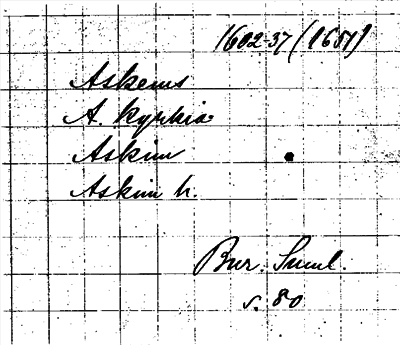 1602-37 (1651)
Askems
A. kyrkia
Askim
Askim h.
Bur. Suml.
s. 80